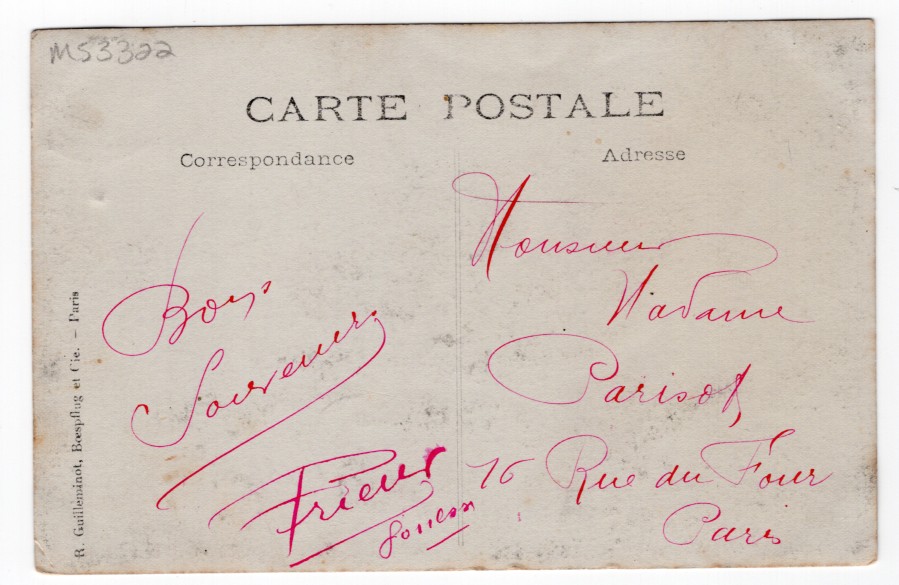 M53322
CARTE POSTALE
Correspondance
Adresse
Bons
Souvenirs
Prieur
Monsieur
Madame
Parisot
76 Rue du Four
Paris
R. Guilleminot, Bœspflug et Cie. – Paris